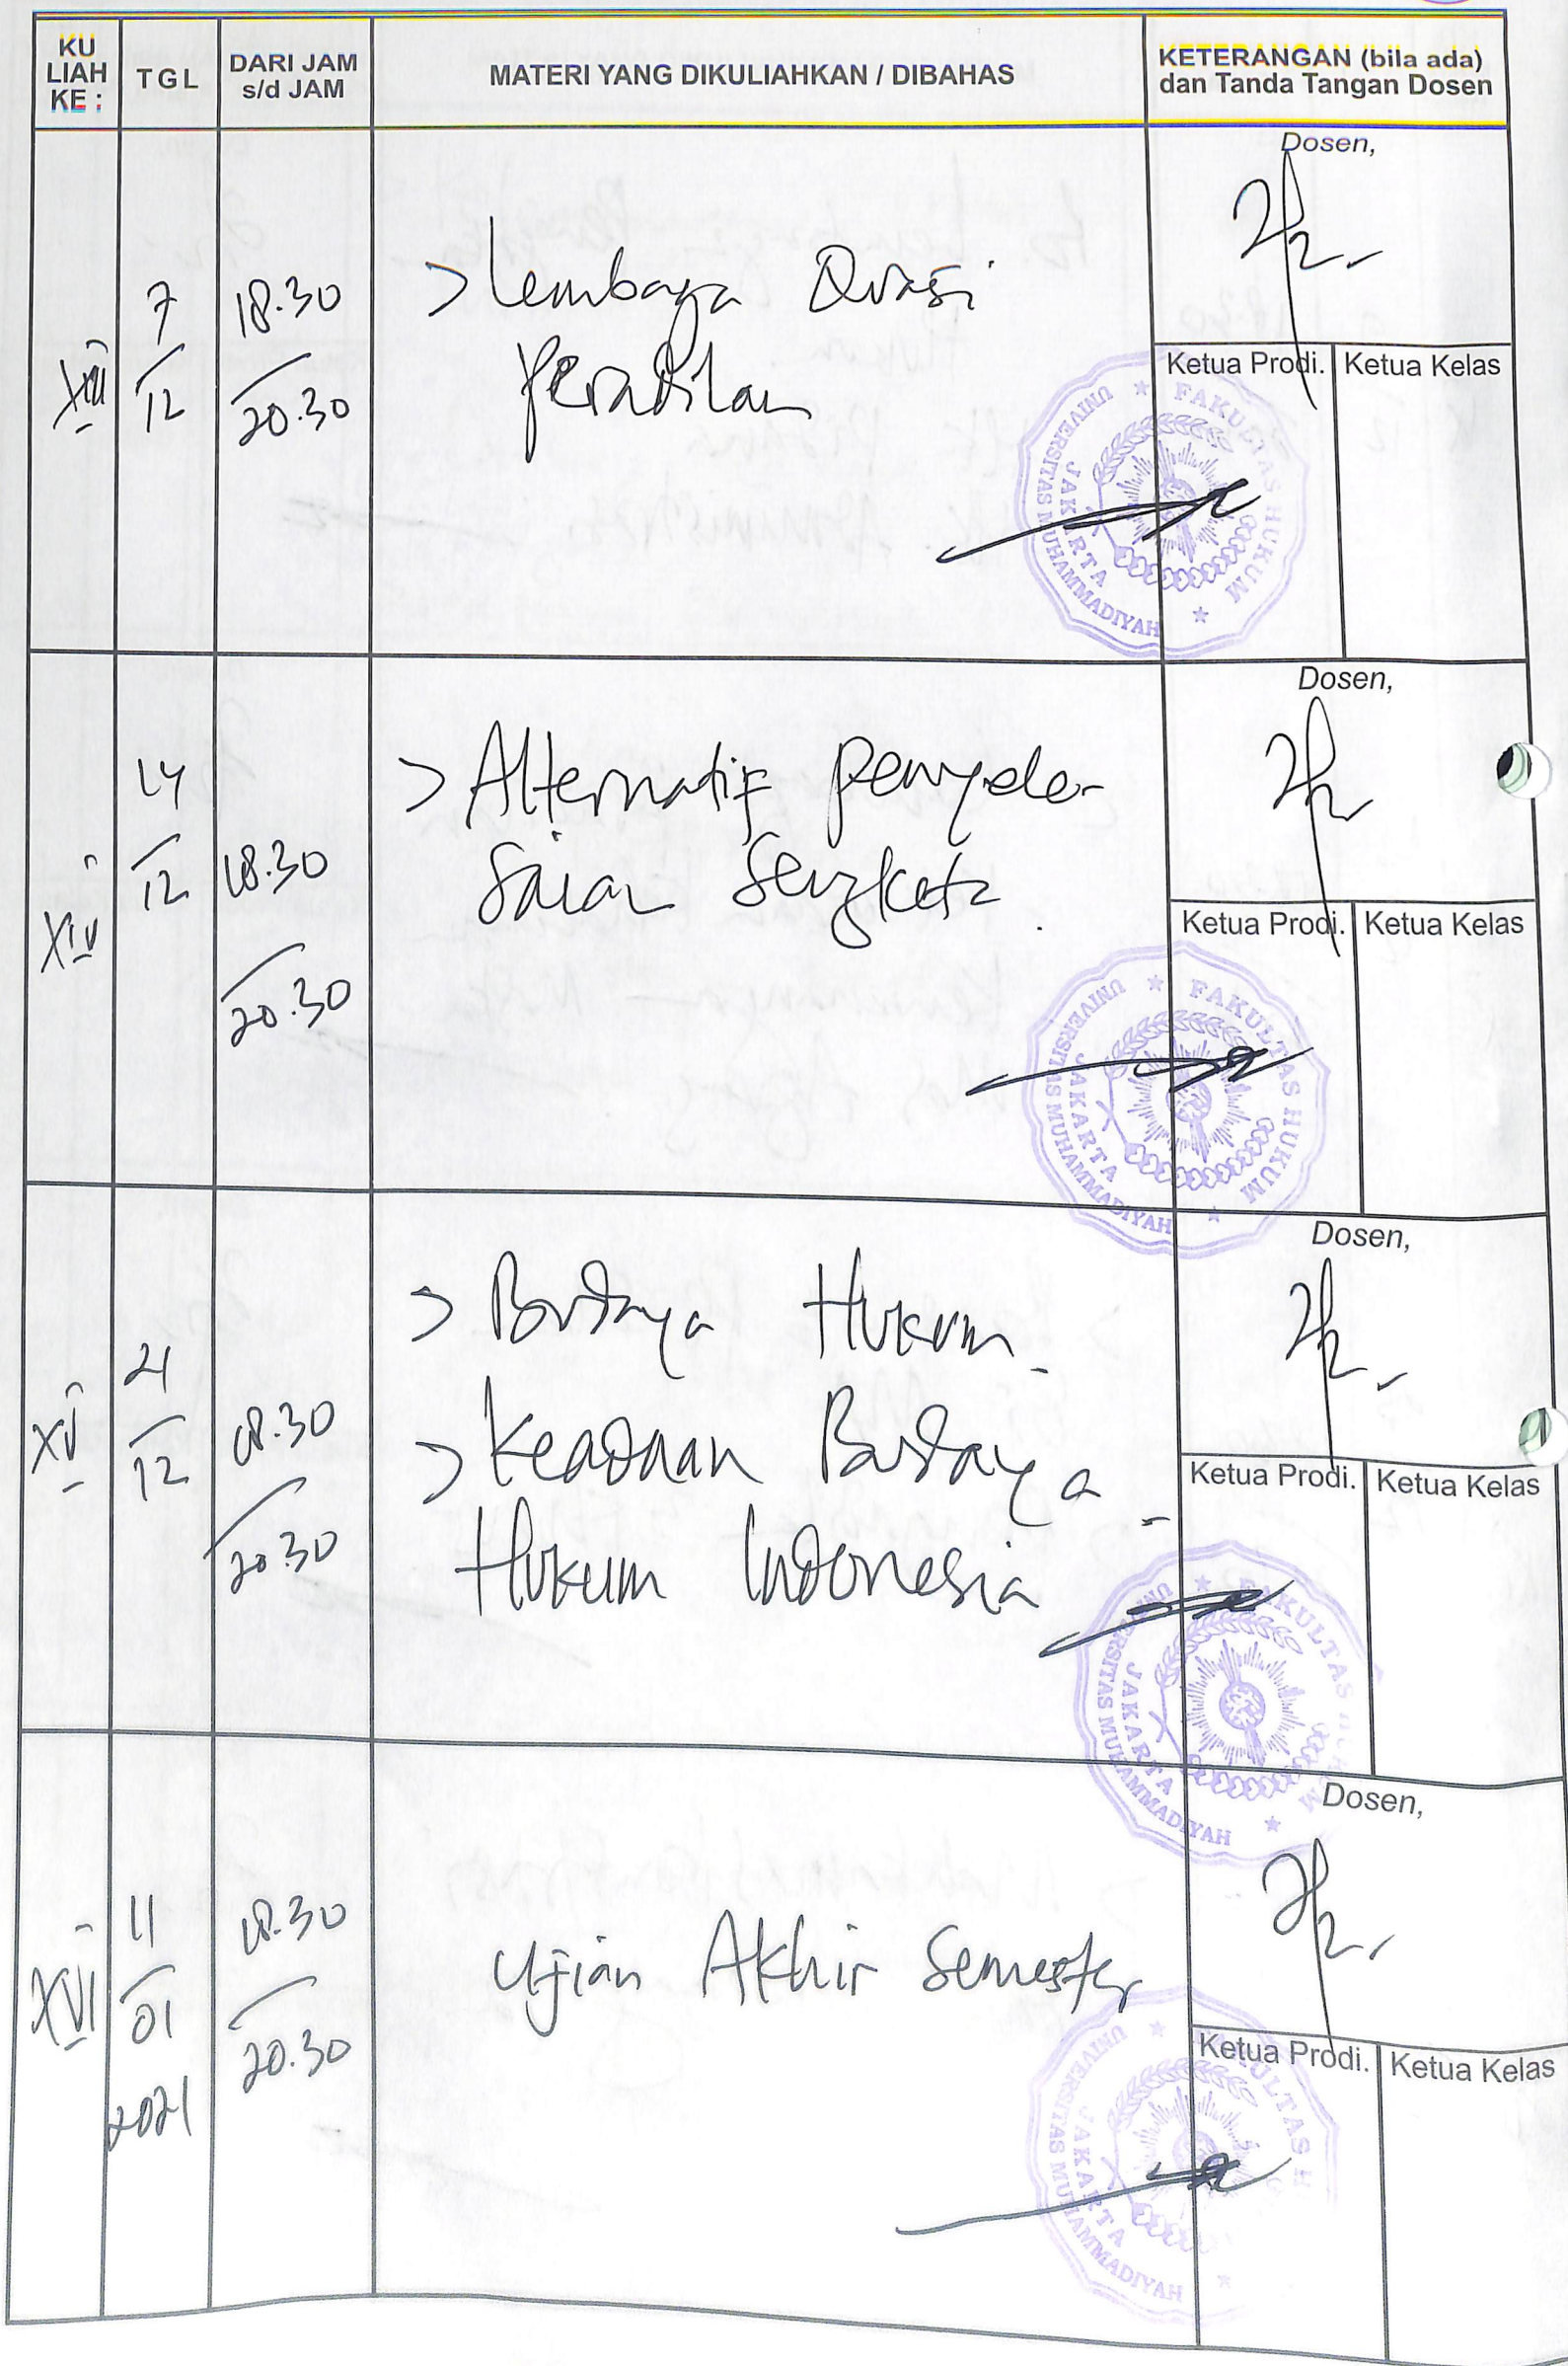 KU
LIAH
KE :
TGL
DARI JAM
s/d JAM
MATERI YANG DIKULIAHKAN / DIBAHAS
KETERANGAN (bila ada)
dan Tanda Tangan Dosen
XIII
7
12
18.30
20.30
> Lembaga Quasi
Peradilan
Dosen,
Ketua Prodi.
Ketua Kelas
FAKULTAS HUKUM
UNIVERSITAS MUHAMMADIYAH
JAKARTA
XIV
14
12
18.30
20.30
> Alternatif Penyele-
saian Sengketa
Dosen,
Ketua Prodi.
Ketua Kelas
FAKULTAS HUKUM
UNIVERSITAS MUHAMMADIYAH
JAKARTA
XV
21
12
18.30
20.30
> Budaya Hukum
> Keadaan Budaya
Hukum Indonesia
Dosen,
Ketua Prodi.
Ketua Kelas
FAKULTAS
UNIVERSITAS MUHAMMADIYAH
JAKARTA
XVI
11
01
2021
18.30
20.30
Ujian Akhir Semester
Dosen,
Ketua Prodi.
Ketua Kelas
UNIVERSITAS MUHAMMADIYAH
JAKARTA